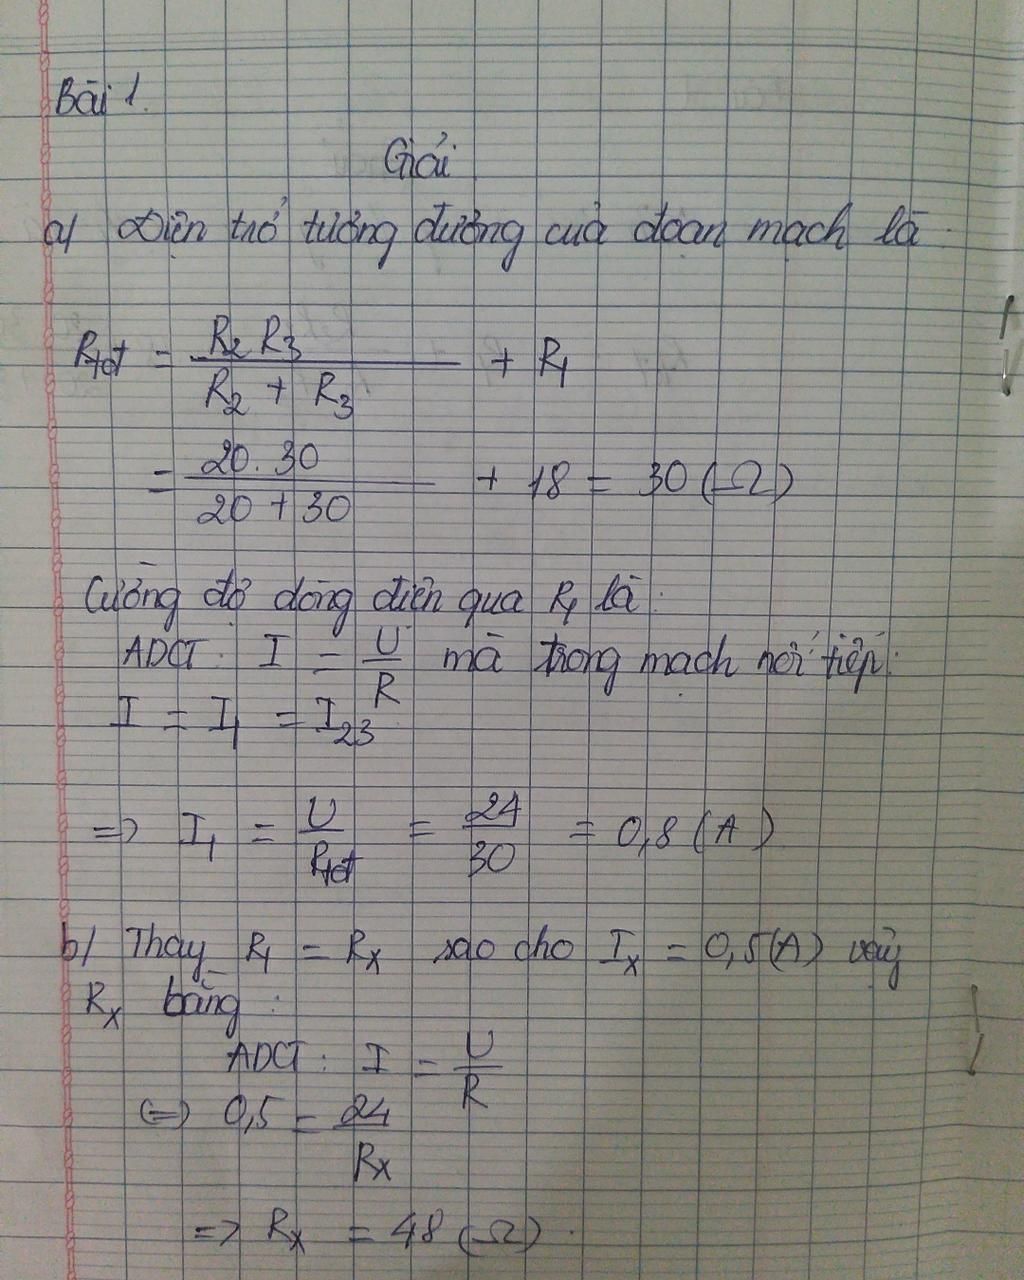 Bài 1.
Giải
a/ Điện trở tương đương của đoạn mạch là
Rtđ = R2 R3 / R2 + R3 + R1
= 20.30 / 20 + 30 + 18 = 30 (Ω)
Cường độ dòng điện qua R1 là:
ADCT: I = U / R mà trong mạch nối tiếp:
I = I1 = I23
=> I1 = U / Rtđ = 24 / 30 = 0,8 (A)
b/ Thay R1 = Rx sao cho Ix = 0,5(A) vậy
Rx bằng:
ADCT: I = U / R
<=> 0,5 = 24 / Rx
=> Rx = 48 (Ω).